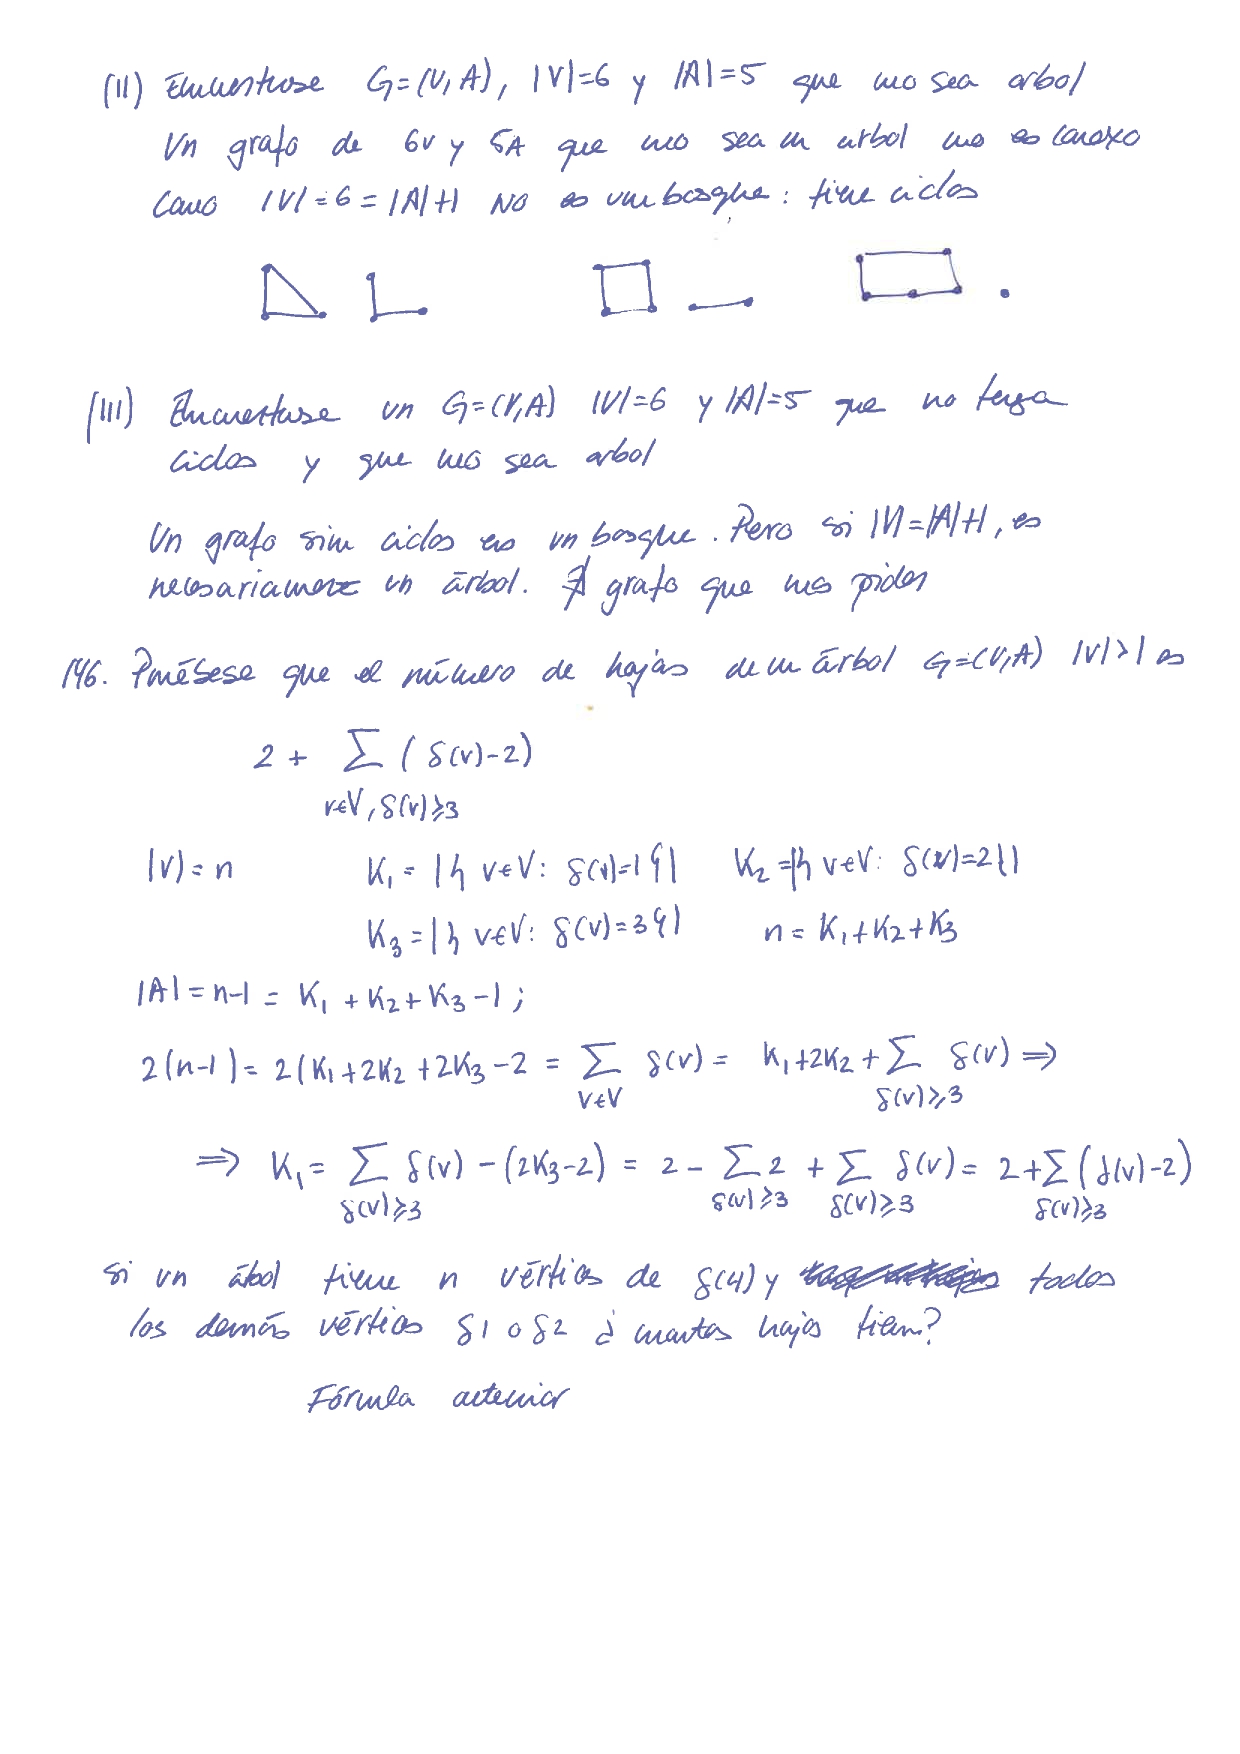 (II) Encuéntrese G=(V,A), |V|=6 y |A|=5 que no sea arbol
Un grafo de 6v y 5A que no sea un arbol no es conexo
Como |V|=6=|A|+1 NO es un bosque: tiene ciclos
(III) Encuéntrese un G=(V,A) |V|=6 y |A|=5 que no tenga
ciclos y que no sea arbol
Un grafo sin ciclos es un bosque. Pero si |V|=|A|+1, es
necesariamente un árbol. ∄ grafo que nos piden
146. Pruébese que el número de hojas de un árbol G=(V,A) |V|>1 es
2 + ∑ (δ(v)-2)
v∈V, δ(v)≥3
|V|=n K₁=|{v∈V: δ(v)=1}| K₂=|{v∈V: δ(v)=2}|
K₃=|{v∈V: δ(v)=3}| n=K₁+K₂+K₃
|A|=n-1=K₁+K₂+K₃-1;
2(n-1)=2(K₁+2K₂+2K₃-2 = ∑ δ(v) = K₁+2K₂+∑ δ(v) ⇒
v∈V δ(v)≥3
⇒ K₁= ∑ δ(v) -(2K₃-2) = 2-∑ 2 + ∑ δ(v) = 2+∑(δ(v)-2)
δ(v)≥3 δ(v)≥3 δ(v)≥3 δ(v)≥3
Si un árbol tiene n vértices de δ(4) y todos
los demás vértices δ1 o δ2 ¿ cuantas hojas tiene?
Fórmula anterior